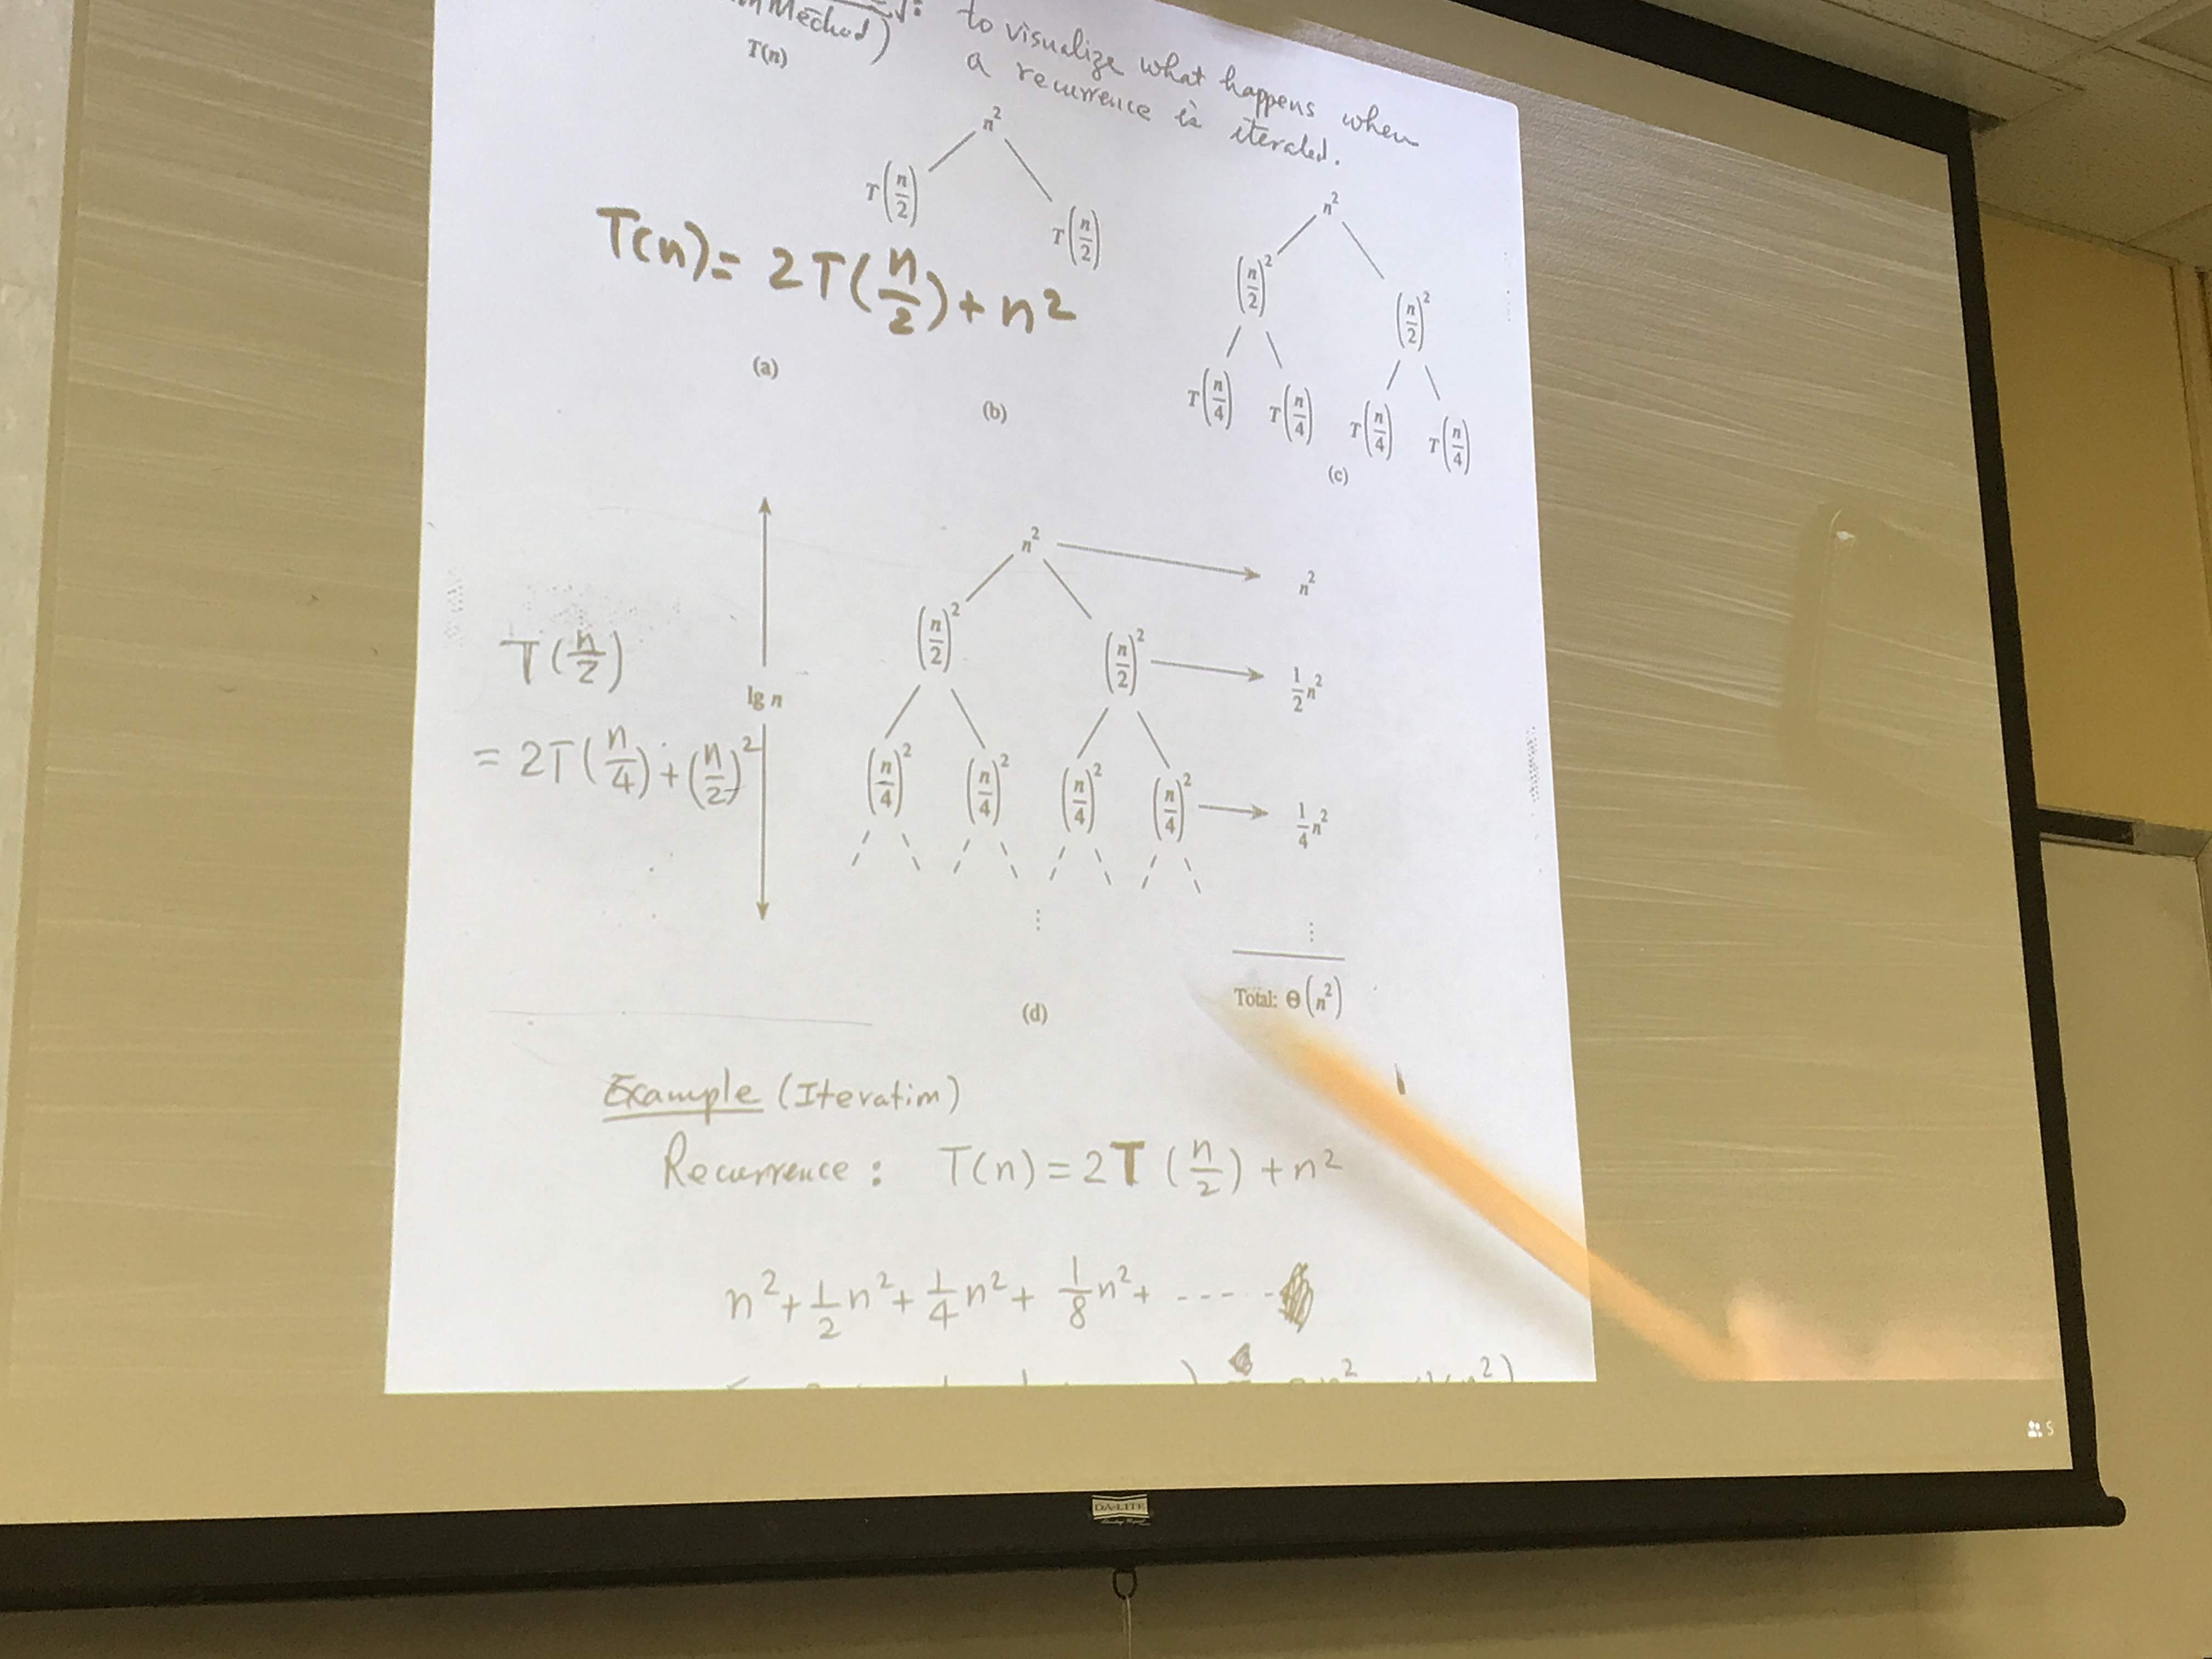 to visualize what happens when
Method)
a recurrence is iterated.
T(n)
n²
T(n/2) T(n/2)
T(n) = 2T(n/2) + n²
(a)
(b)
n²
(n/2)² (n/2)²
T(n/4) T(n/4) T(n/4) T(n/4)
(c)
n² n²
(n/2)² (n/2)² 1/2 n²
T(n/2)
lg n
= 2T(n/4) + (n/2)²
(n/4)² (n/4)² (n/4)² (n/4)² 1/4 n²
⋮ ⋮
Total: Θ(n²)
(d)
Example (Iteratim)
Recurrence: T(n) = 2T(n/2) + n²
n² + 1/2 n² + 1/4 n² + 1/8 n² + -----
5
DA-LITE